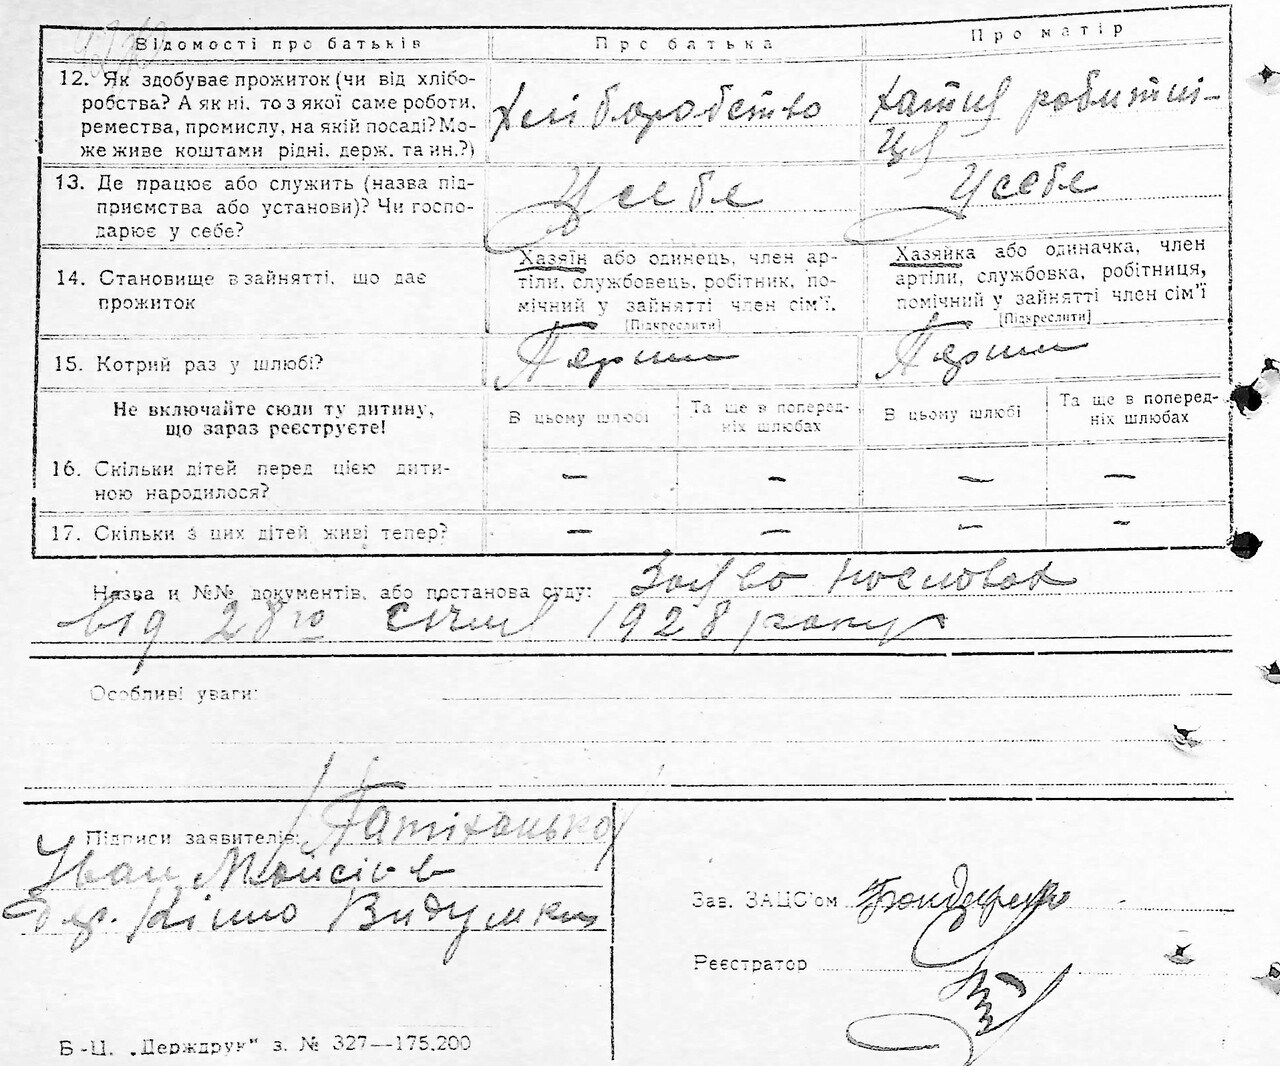 Відомості про батьків
Про батька
Про матір
12. Як здобуває прожиток (чи від хлібо-
робства? А як ні, то з якої саме роботи,
ремества, промислу, на якій посаді? Мо-
же живе коштами рідні, держ. та ин.?)
Хліборобство
хатня робітни-
ця
13. Де працює або служить (назва під-
приємства або установи)? Чи госпо-
дарює у себе?
У себе
У себе
14. Становище в зайнятті, що дає
прожиток
Хазяїн або одинець, член ар-
тіли, службовець, робітник, по-
мічний у зайнятті член сім'ї.
[Підкреслити]
Хазяйка або одиначка, член
артіли, службовка, робітниця,
помічний у зайнятті член сім'ї
[Підкреслити]
15. Котрий раз у шлюбі?
Перший
Перший
Не включайте сюди ту дитину,
що зараз реєструєте!
В цьому шлюбі
Та ще в поперед-
ніх шлюбах
В цьому шлюбі
Та ще в поперед-
ніх шлюбах
16. Скільки дітей перед цією дити-
ною народилося?
— — — —
17. Скільки з цих дітей живі тепер?
— — — —
Назва и №№ документів, або постанова суду:
від 28го січня 1928 року
Особливі уваги:
Підписи заявителів:
Іван Мойсіїв
Зав. ЗАЦС'ом Бондаренко
Реєстратор
Б-Ц. „Держдрук" з. № 327—175.200